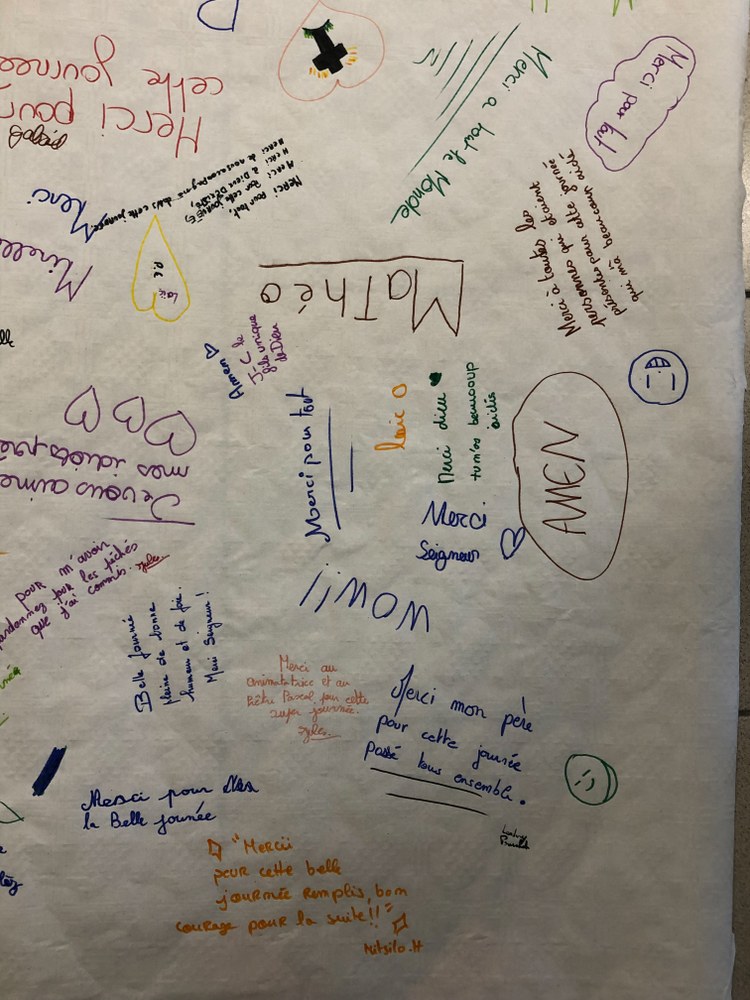 Merci pour tout
Merci a tout le Monde
Merci pour
cette journée
Merci pour tout,
Merci à Dieu
Pour cette journée,
Merci
Merci à toutes les
personnes qui étaient
présentes pour cette journée
qui m'a beaucoup aidé
Merci
MaThéo
Amen
J-C le
fils unique
de Dieu
Merci pour tout
Loic
Merci dieu
tum'as beaucoup
aidés
AMEN
Merci
Seigneur
Je vous aime
mes idiots
WOW!!
pour m'avoir
pour les péchés
que j'ai commis.
Jules
Belle journée
pleine de bonne
humeur et de foi.
Merci Seigneur!
Merci au
animatatrice et au
Pascal pour cette
super journée.
Jules
Merci mon père
pour cette journée
passé tous ensemble.
Merci pour
la Belle journée
"Mercii
pour cette belle
journée remplis, bon
courage pour la suite!!"
Mitsilo.H